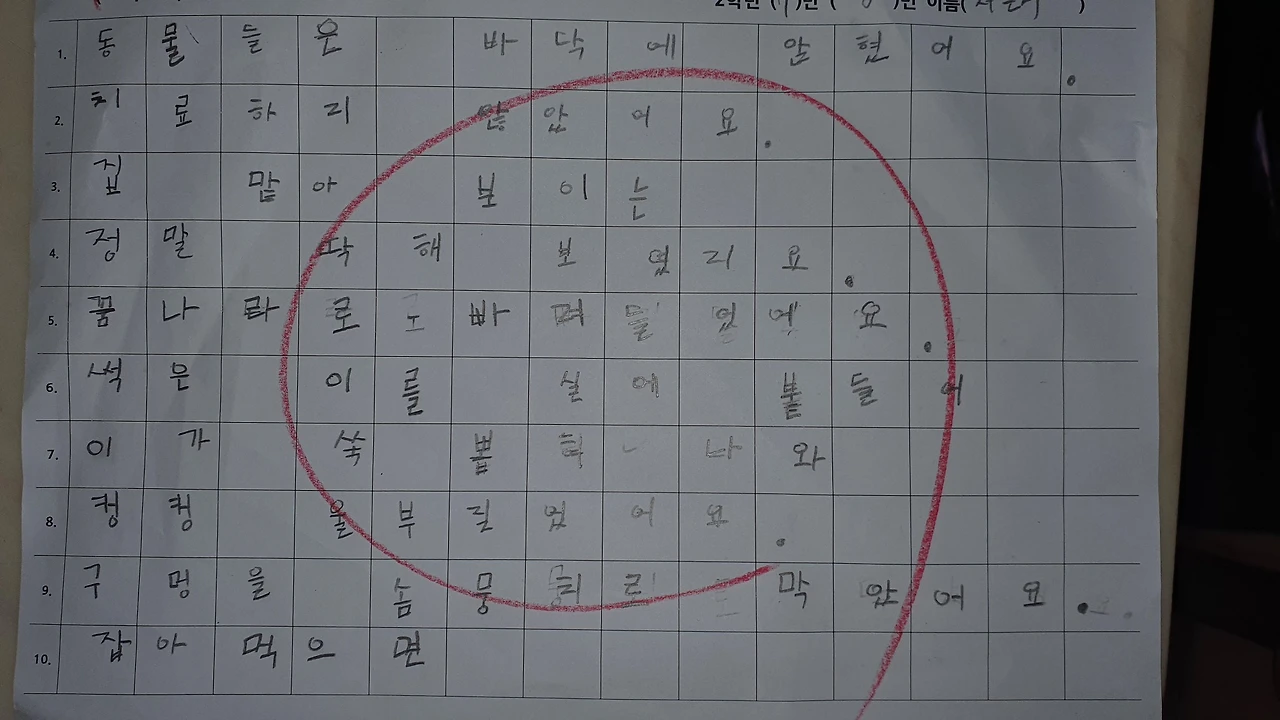 2학년 ( )반 ( )번 이름( )
1. 동물들은 바닥에 앉혔어요.
2. 치료하리 않았어요.
3. 집 맡아 보이는
4. 정말 딱해 보였리요.
5. 꿈나라로 빠려들었에요.
6. 썩은 이를 실에 붙들어
7. 이가 쑥 뽑혀 나와
8. 컹컹 울부질었어요.
9. 구멍을 솜뭉리로 막았어요.
10. 잡아먹으면